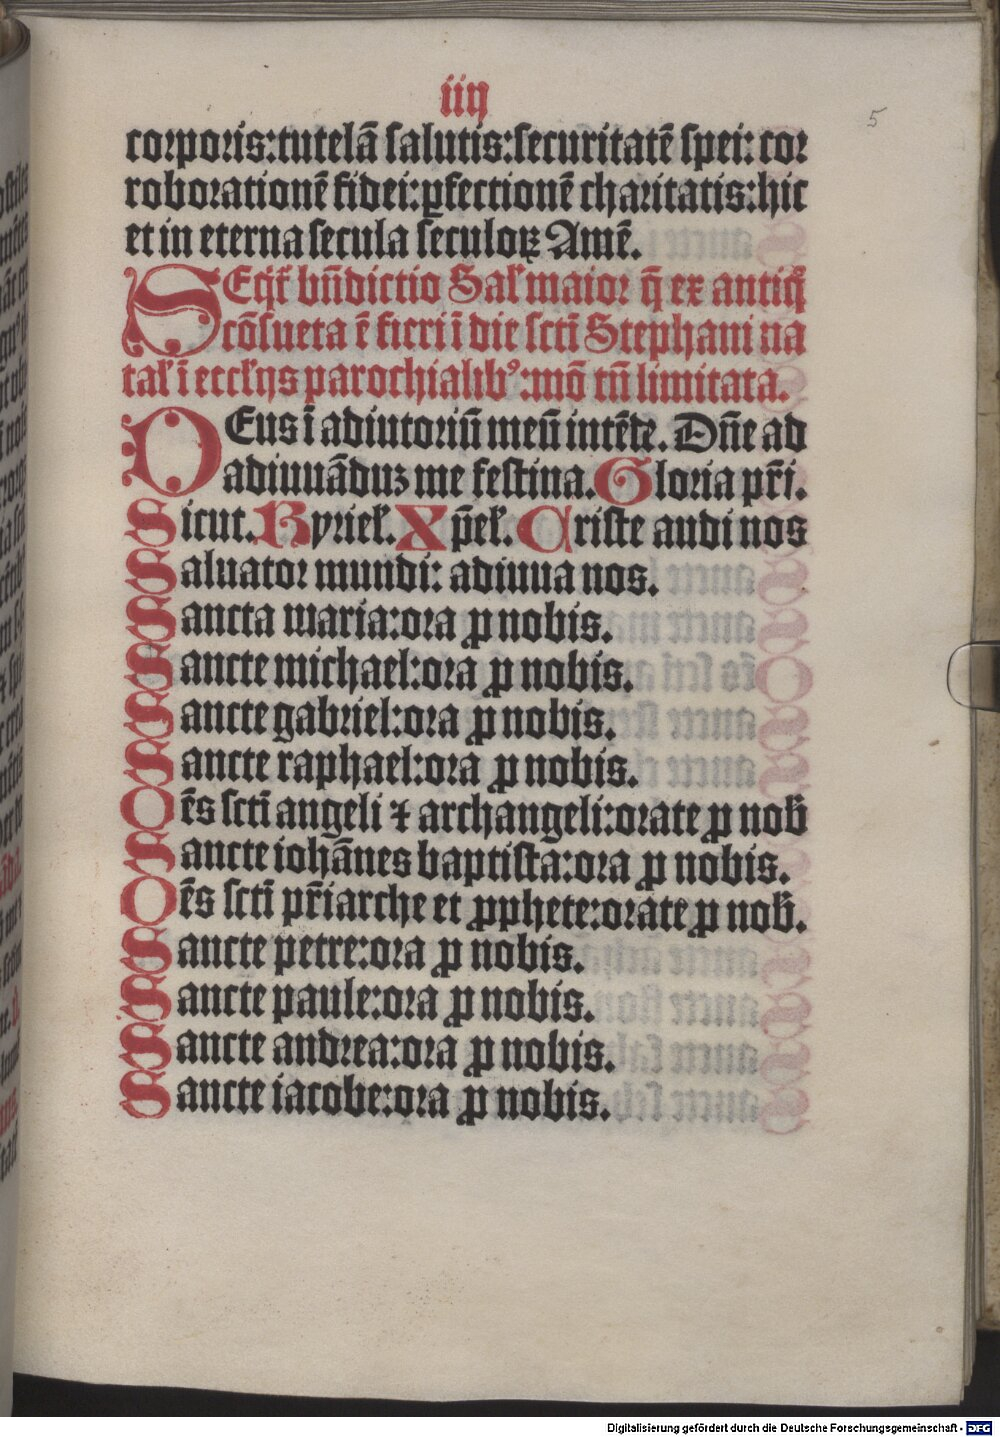 iiij
5
corporis:tutelā salutis:securitatē spei: cor
roborationē fidei:ꝑfectionē charitatis:hic
et in eterna secula seculoꝝ Amē.
SEqͥt̄ bn̄dictio Sal̄ maior q̄ ex antiqͦ
cōsueta ē fieri ī die scti̅ Stephani na
tal̄ ī eccl̄ijs parochialibꝰ:mō tn̄ limitata.
DEus ī adiutoriū meū intēde. Dn̄e ad
adiuuāduꝫ me festina. Gloria pr̄i.
Sicut. Kyriel̄. Xp̄el̄. Criste audi nos
Saluator mundi: adiuua nos.
Sancta maria:ora ꝓ nobis.
Sancte michael:ora ꝓ nobis.
Sancte gabriel:ora ꝓ nobis.
Sancte raphael:ora ꝓ nobis.
Oēs scti̅ angeli ⁊ archangeli:orate ꝓ nob̄
Sancte iohānes baptista:ora ꝓ nobis.
Oēs scti̅ pr̄iarche et ꝓphete:orate ꝓ nob̄.
Sancte petre:ora ꝓ nobis.
Sancte paule:ora ꝓ nobis.
Sancte andrea:ora ꝓ nobis.
Sancte iacobe:ora ꝓ nobis.
Digitalisierung gefördert durch die Deutsche Forschungsgemeinschaft - DFG